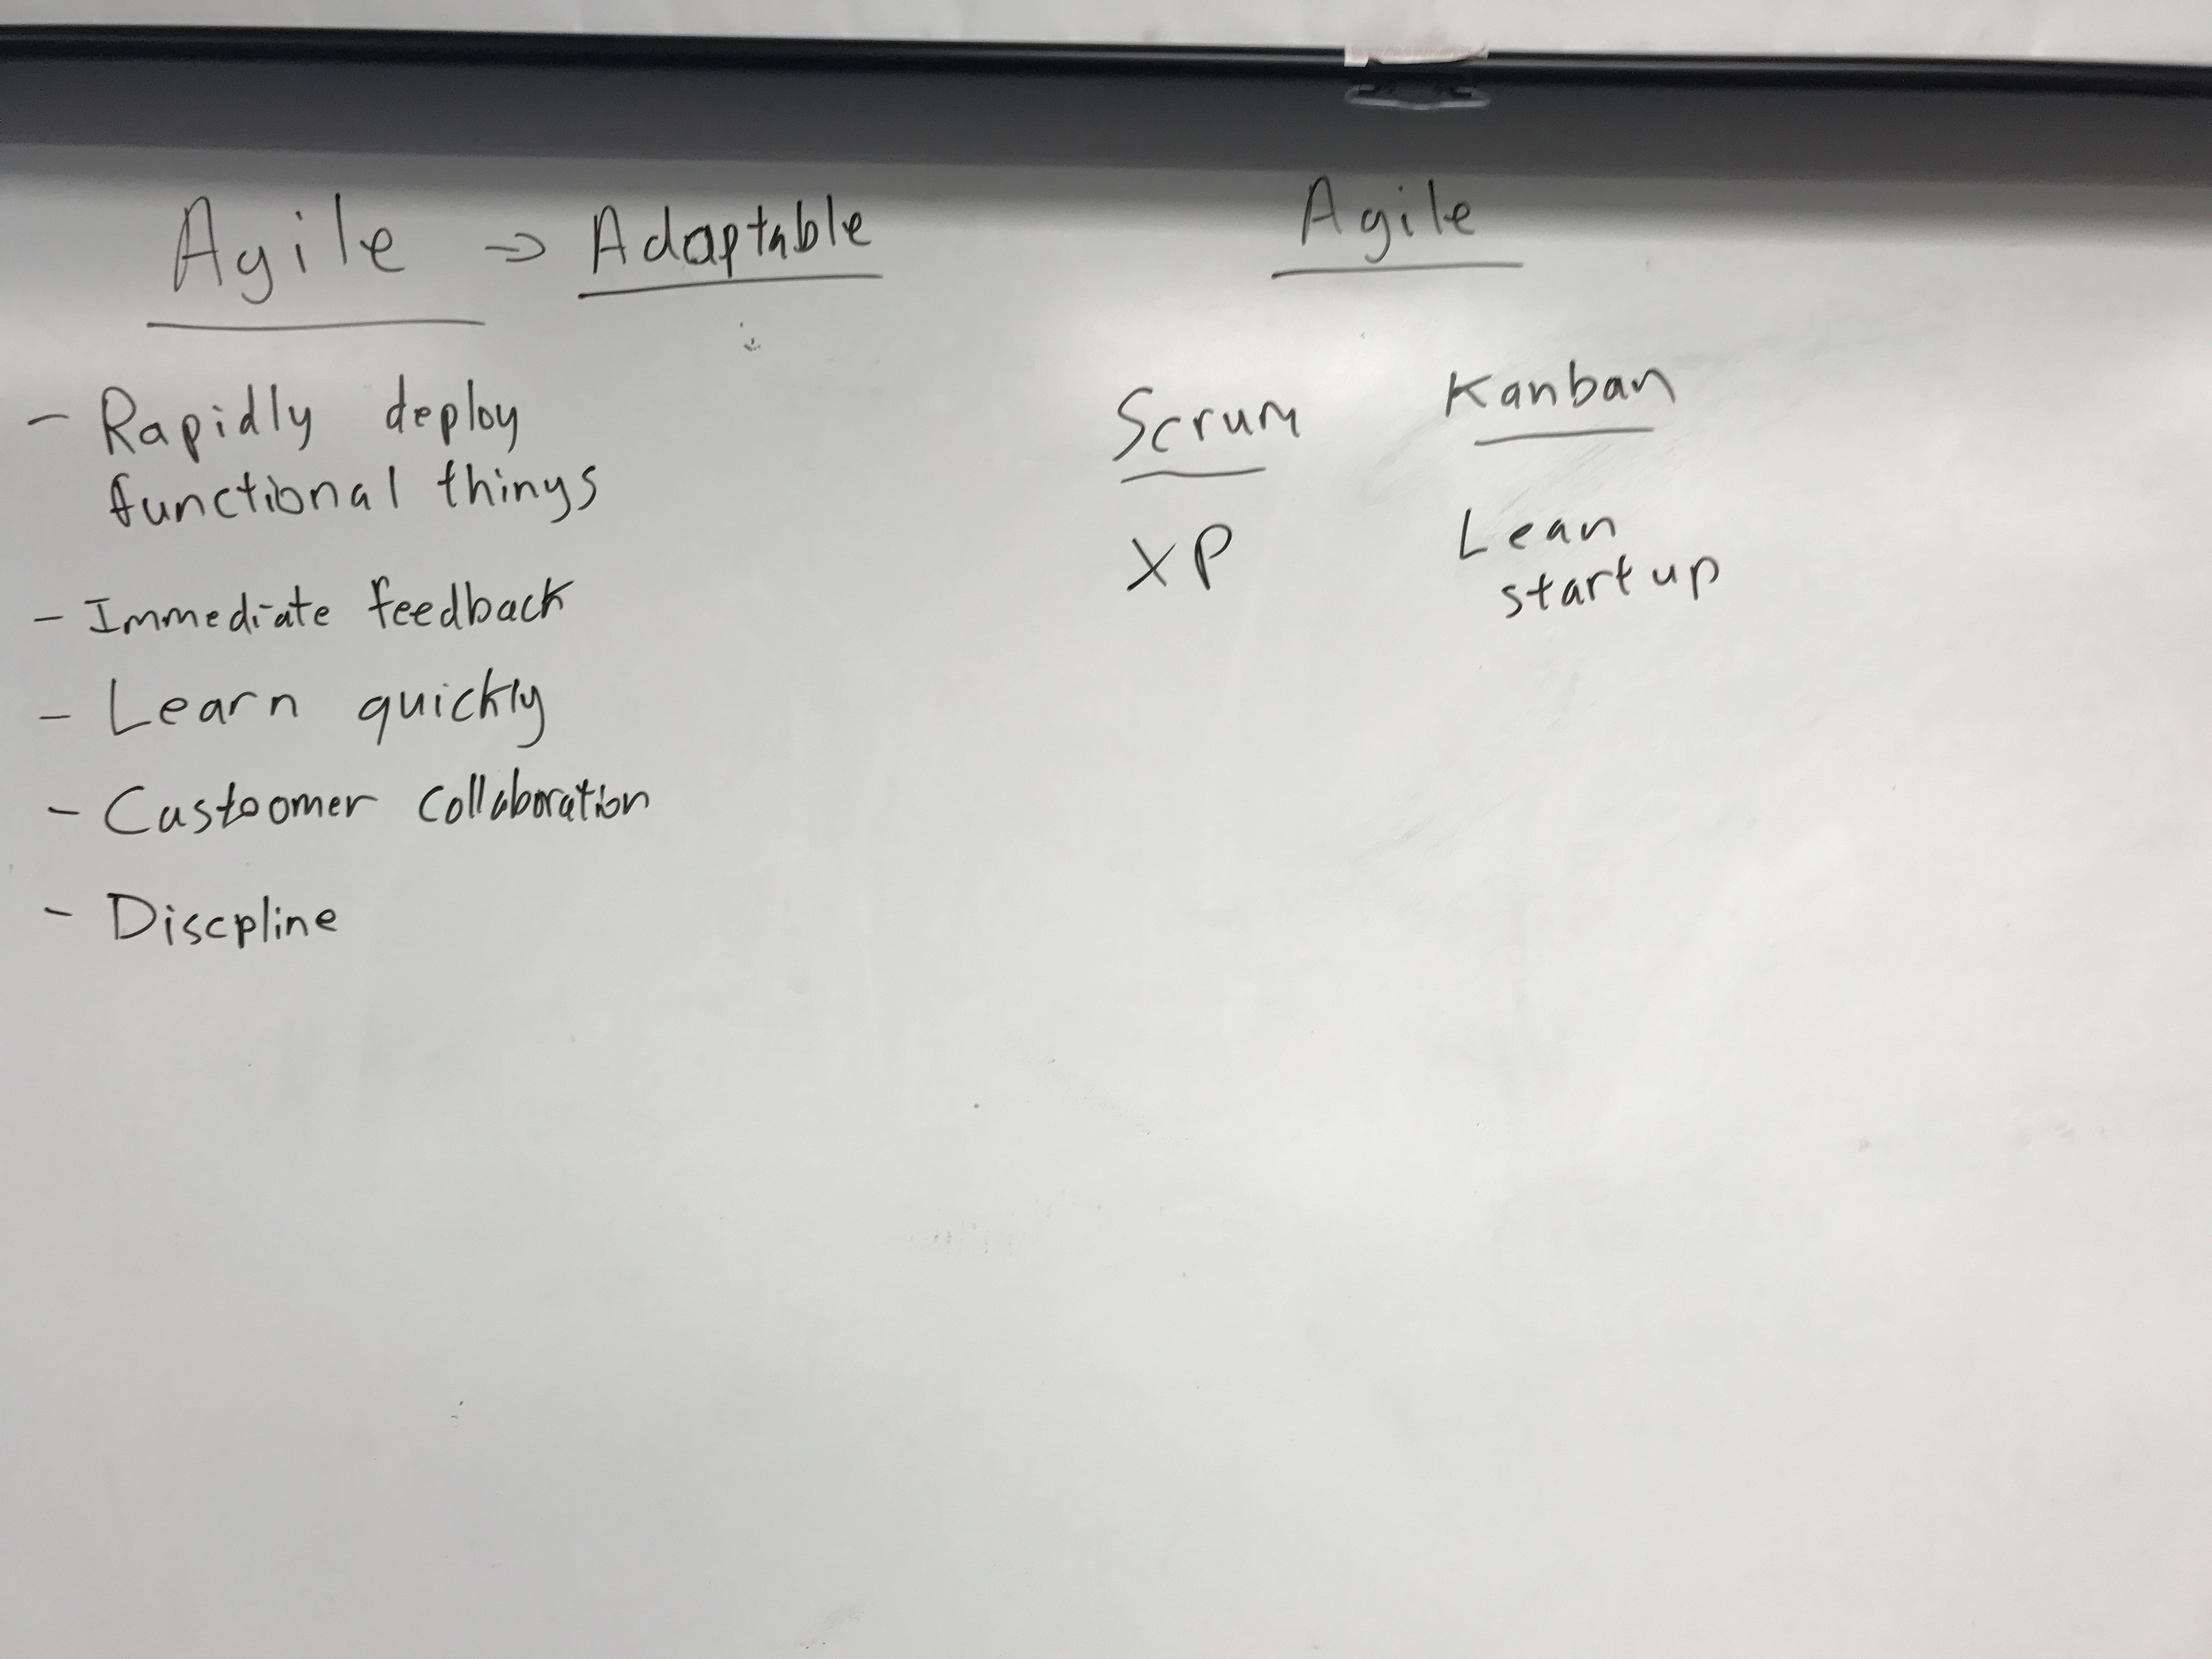 Agile → Adaptable
- Rapidly deploy
functional things
- Immediate feedback
- Learn quickly
- Custoomer collaboration
- Discpline
Agile
Scrum
XP
Kanban
Lean
startup